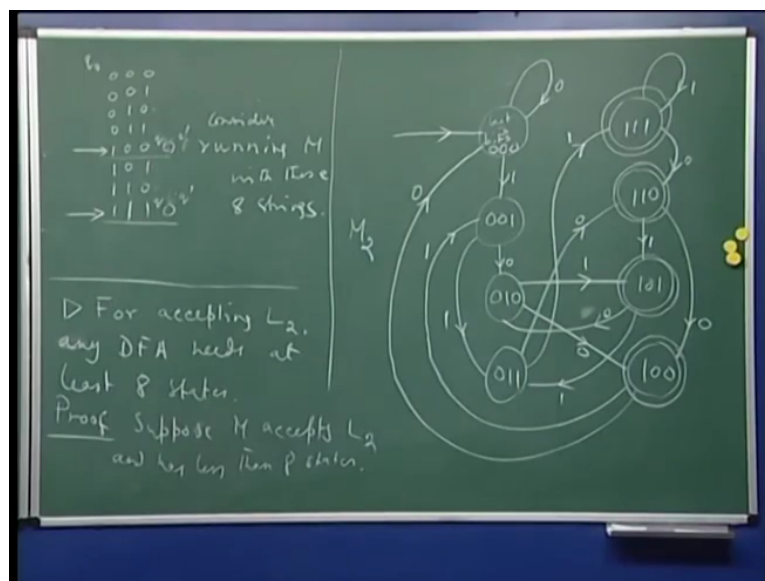 q₀
0 0 0
0 0 1
0 1 0
0 1 1
1 0 0 q 0 q'
1 0 1
1 1 0
1 1 1 q 0 q'
Consider
running M
with these
8 strings.
▷ For accepting L₂,
any DFA needs at
least 8 states.
Proof Suppose M accepts L₂
and has less than 8 states.
M₂
last
3 bits
000
001
010
011
111
110
101
100
0
1
0
1
1
0
1
0
1
0
1
0
1
0
1
0